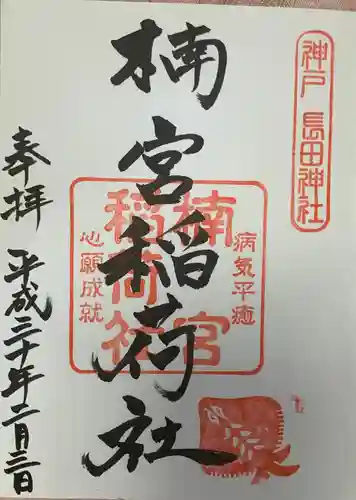 神戸 長田神社
楠宮稲荷社
楠宮
稲荷社
病気平癒
心願成就
奉拝 平成三十年二月三日